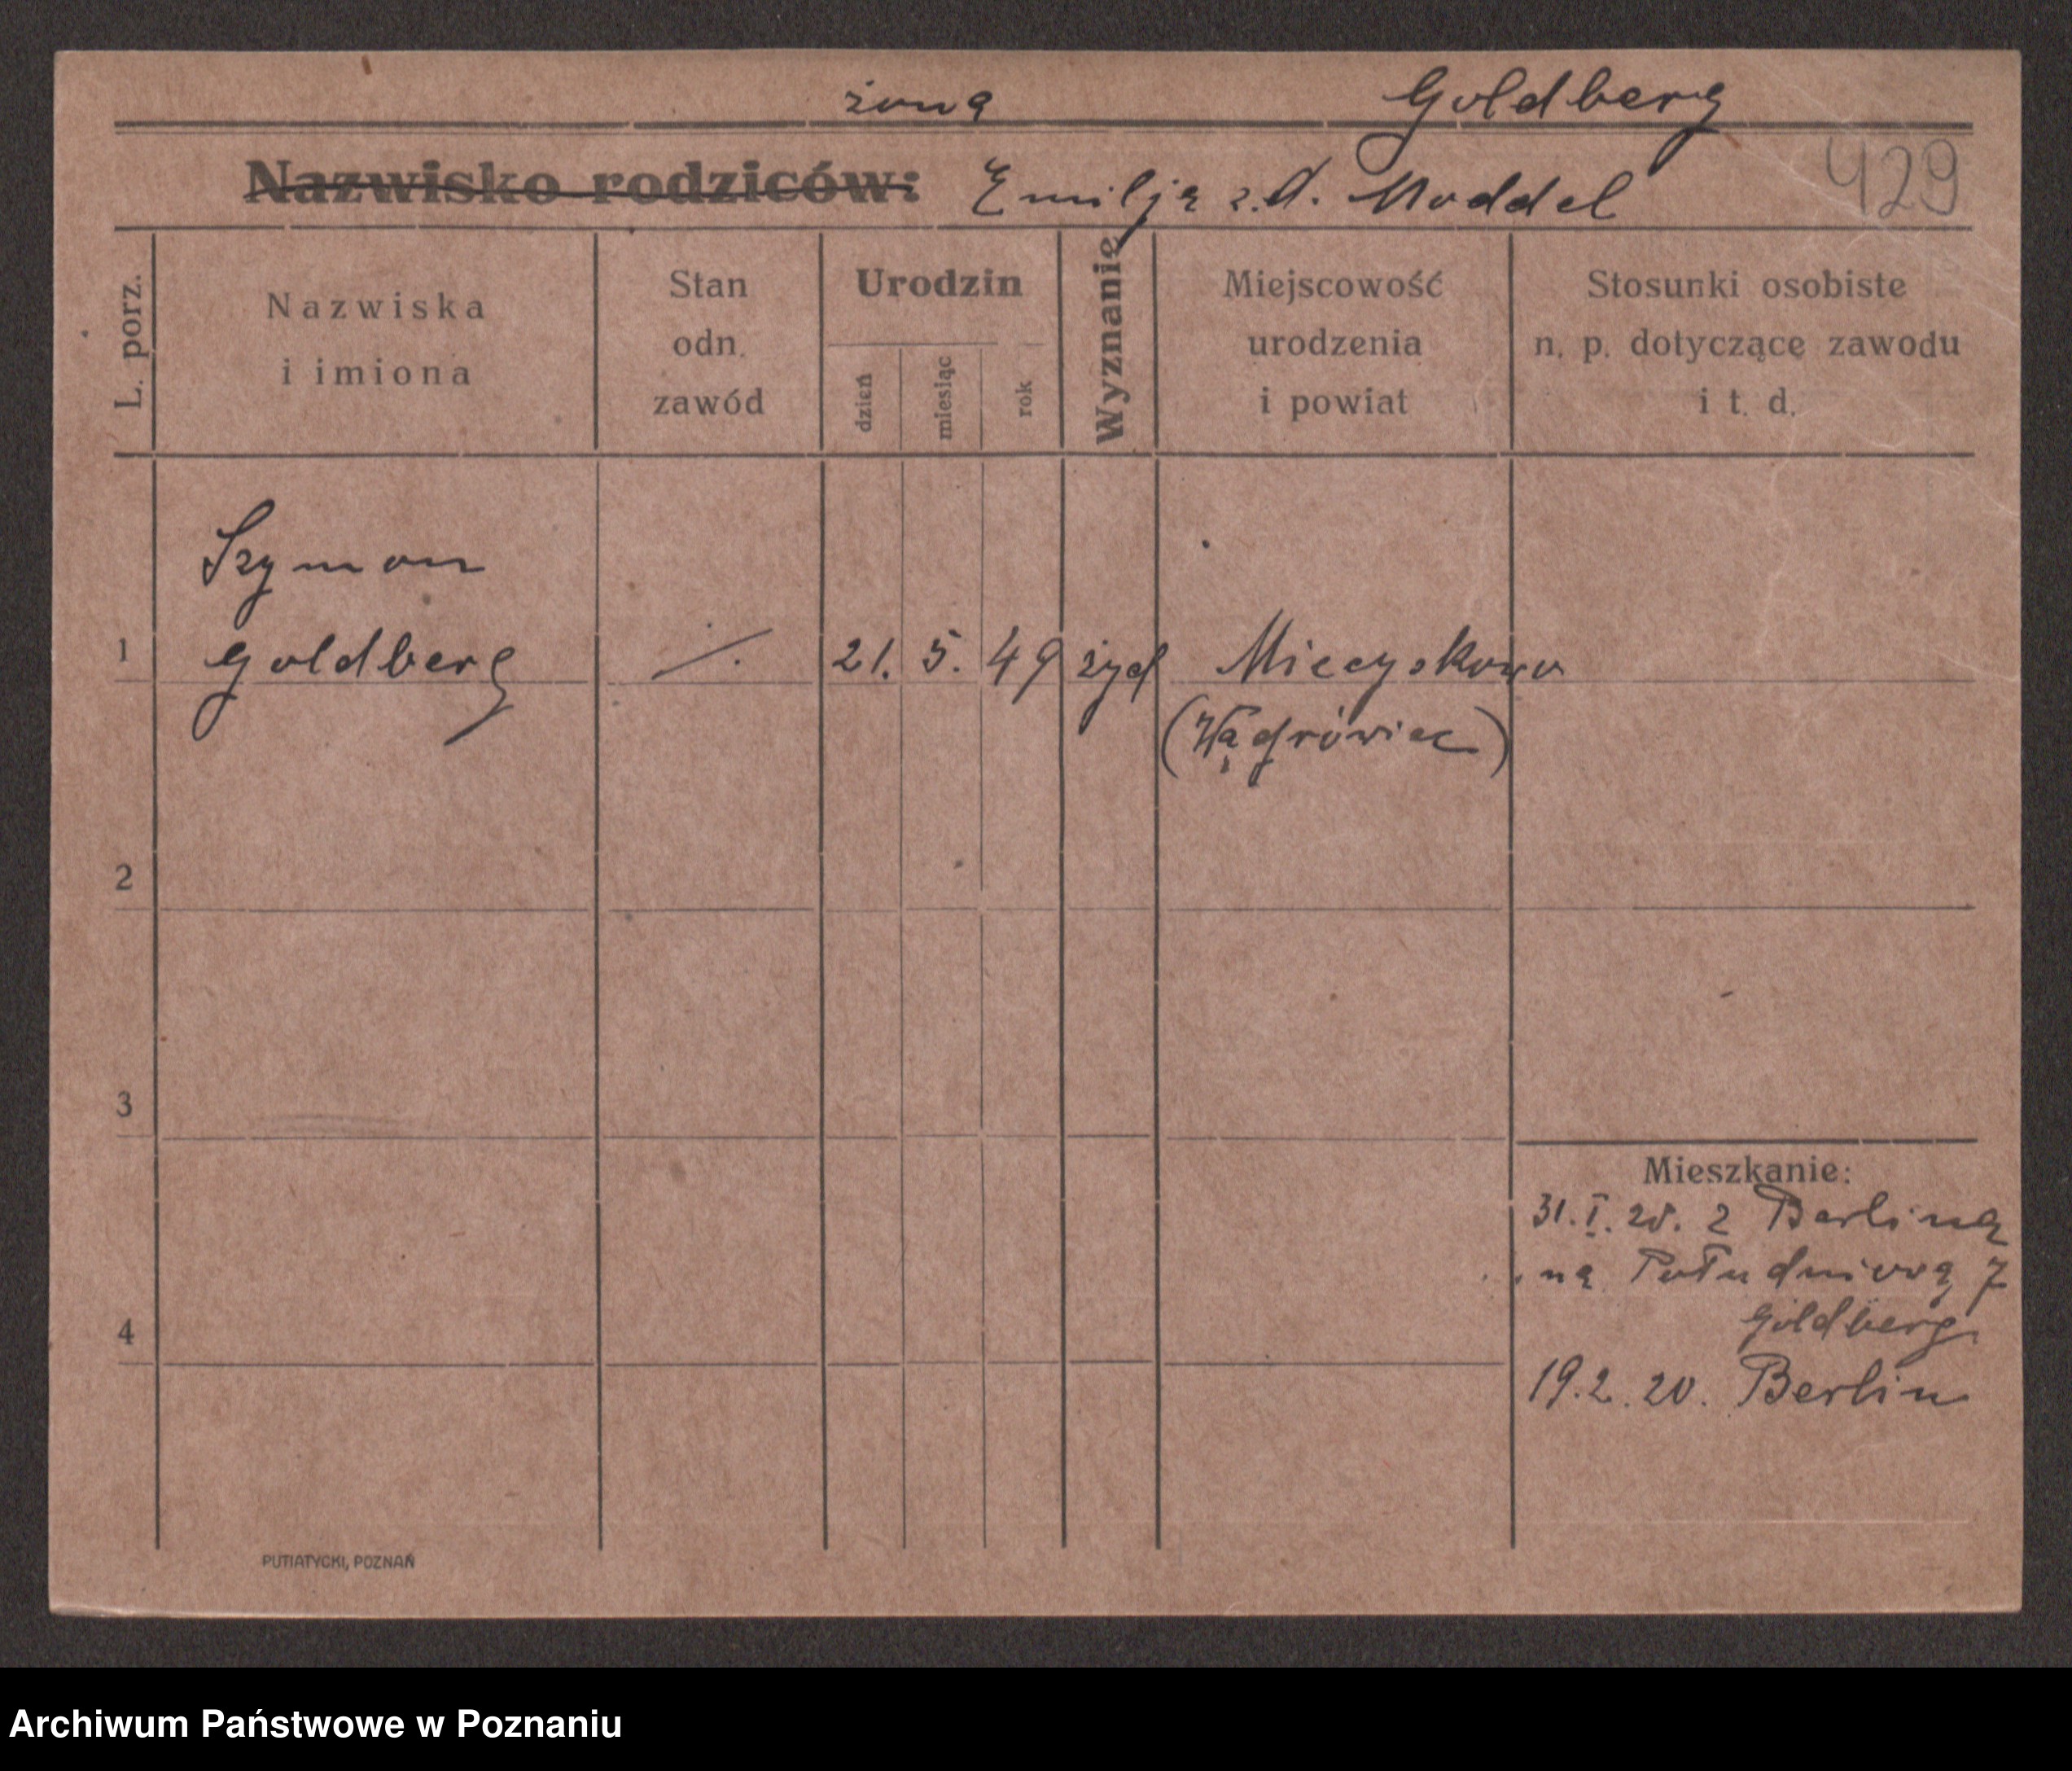 żona Goldberg
Nazwisko rodziców: Emilja z.d. Moddel 429
L. porz.
Nazwiska
i imiona
Stan
odn.
zawód
Urodzin
dzień
miesiąc
rok
Wyznanie
Miejscowość
urodzenia
i powiat
Stosunki osobiste
n. p. dotyczące zawodu
i t. d.
Szymon
1 Goldberg ·/. 21. 5. 49 żyd Mieczyskowo
(Wągrówiec)
2
3
Mieszkanie:
31. I. 20. z Berlina
na Południową 7
Goldberg
4
19.2.20. Berlin
PUTIATYCKI, POZNAŃ
Archiwum Państwowe w Poznaniu